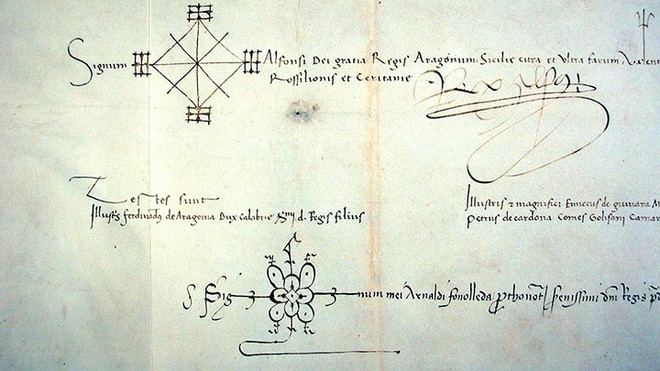 Signum Alfonsi Dei gratia Regis Aragonum Sicilie citra et Ultra farum Valent
Rossilionis et Ceritanie
Rex Alfonsus
Testes sunt
Illustris ferdinandus de Aragonia Dux Calabrie d. Regis filius
Illustris et magnifici Enecus de guivara M
Petrus de cardona Comes Golisani Camar
Sig num mei Arnaldi fonolleda prothonot Serenissimi dni Regis